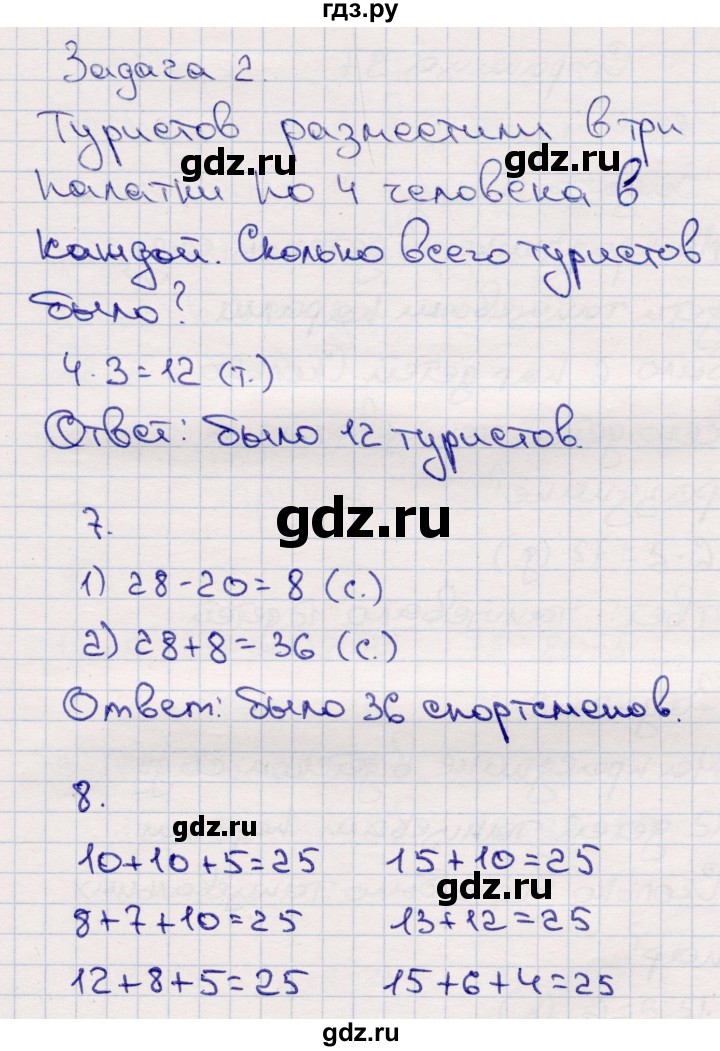 гдз.ру
Задача 2.
Туристов разместили в три
gdz.ru gdz.ru
палатки по 4 человека в
каждой. Сколько всего туристов
было?
4·3=12 (т.)
Ответ: было 12 туристов.
gdz.ru
7.
1) 28-20=8 (с.)
2) 28+8=36 (с.)
Ответ: было 36 спортсменов.
8.
gdz.ru
10+10+5=25 15+10=25
gdz.ru
8+7+10=25 13+12=25
12+8+5=25 15+6+4=25
gdz.ru